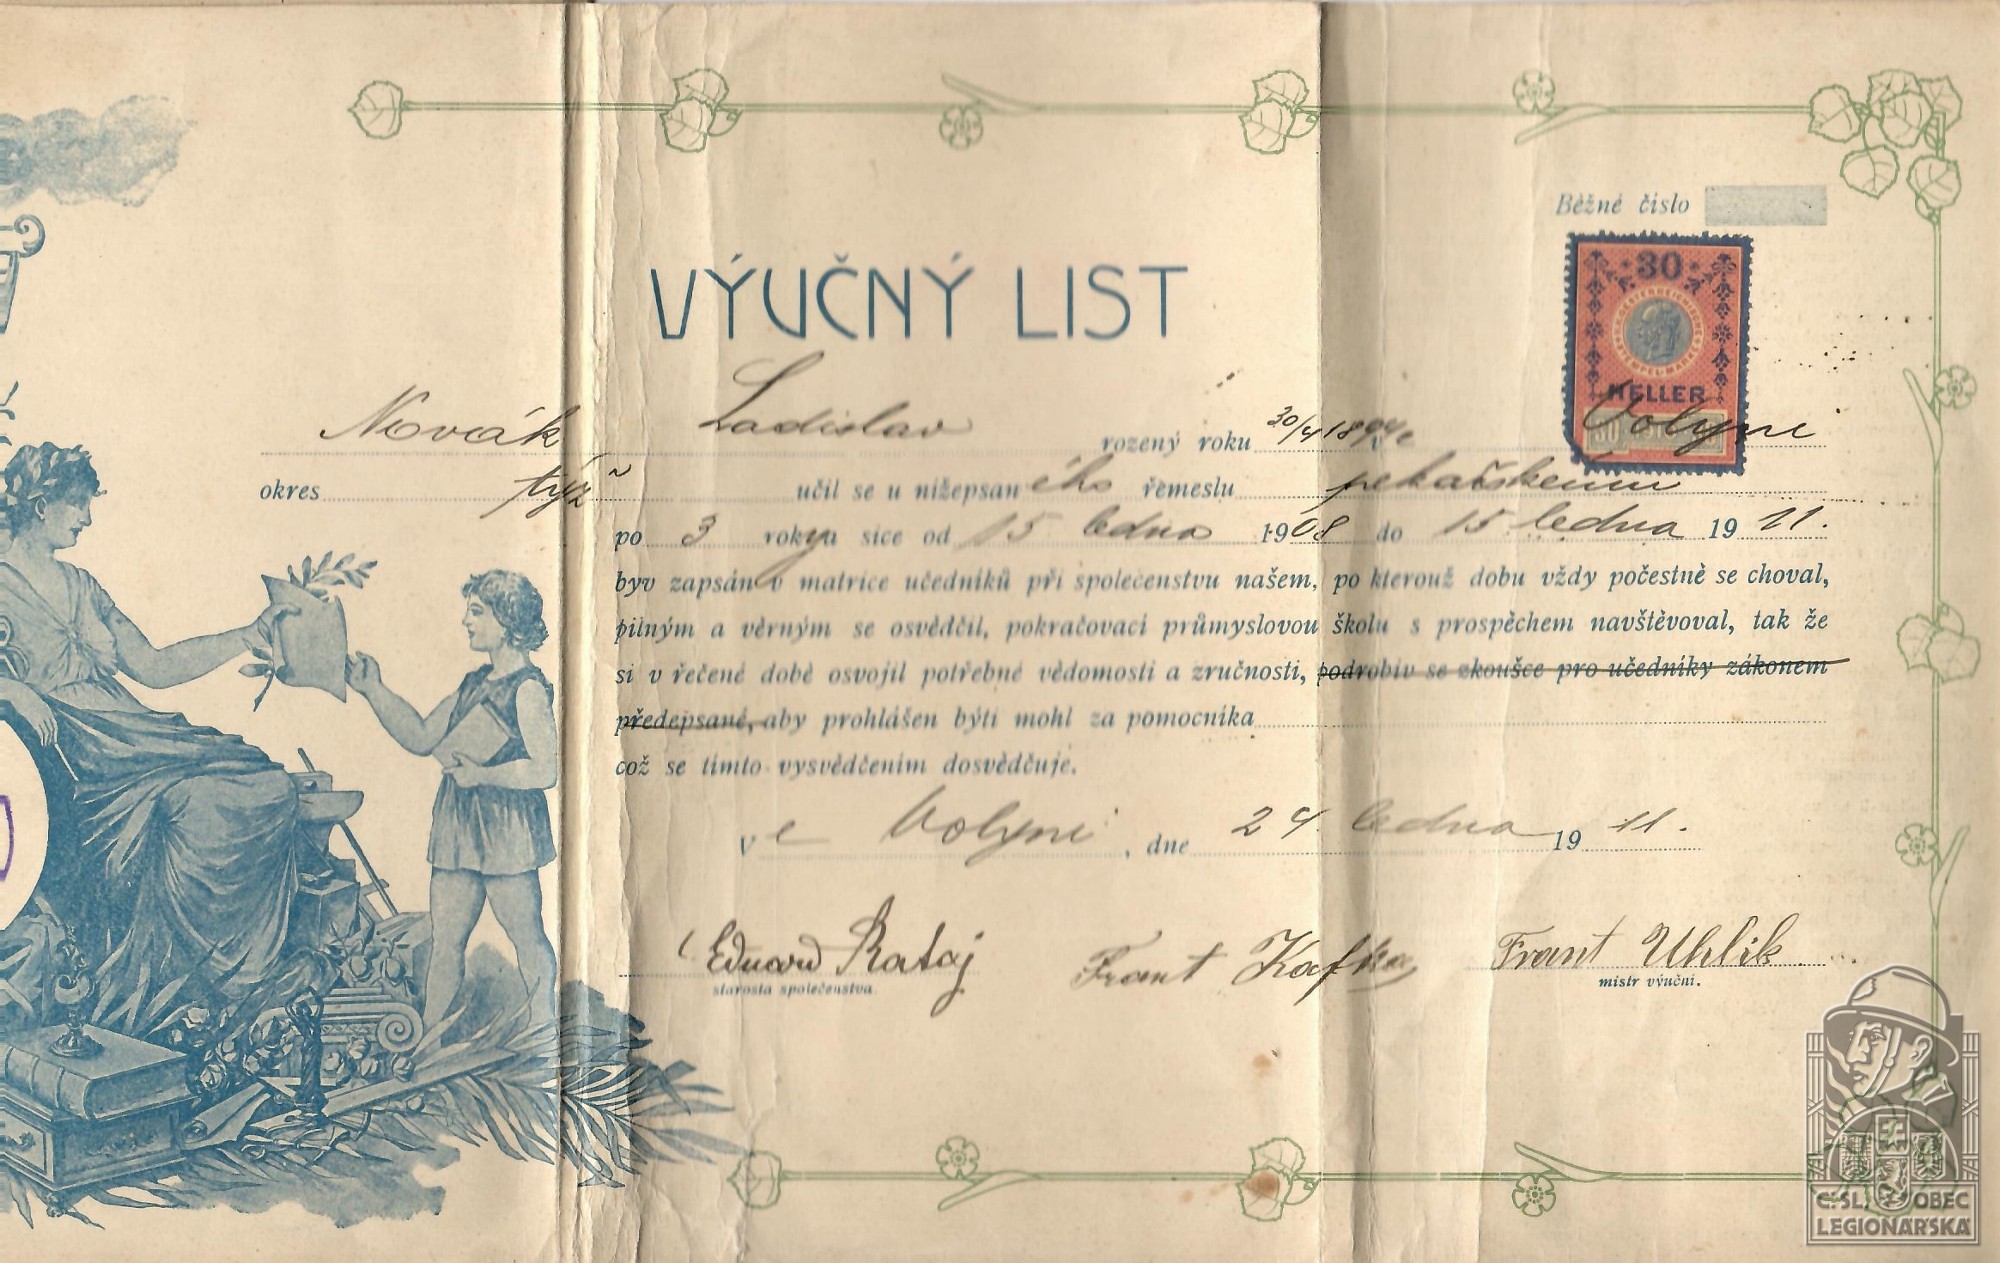 Běžné číslo
VÝUČNÝ LIST
30
HELLER
Novák Ladislav rozený roku 30/4 1894 v Volyni
okres týž učil se u nížepsaného řemeslu pekařskému
po 3 roky a sice od 15 ledna 1908 do 15 ledna 1911.
byv zapsán v matrice učedníků při společenstvu našem, po kterouž dobu vždy počestně se choval,
pilným a věrným se osvědčil, pokračovací průmyslovou školu s prospěchem navštěvoval, tak že
si v řečené době osvojil potřebné vědomosti a zručnosti, podrobiv se zkoušce pro učedníky zákonem
předepsané, aby prohlášen býti mohl za pomocníka
což se tímto vysvědčením dosvědčuje.
Ve Volyni, dne 24. ledna 1911.
Eduard Rataj Frant Kafka Frant Uhlík
starosta společenstva. mistr výuční.
Č.SL. OBEC
LEGIONÁŘSKÁ